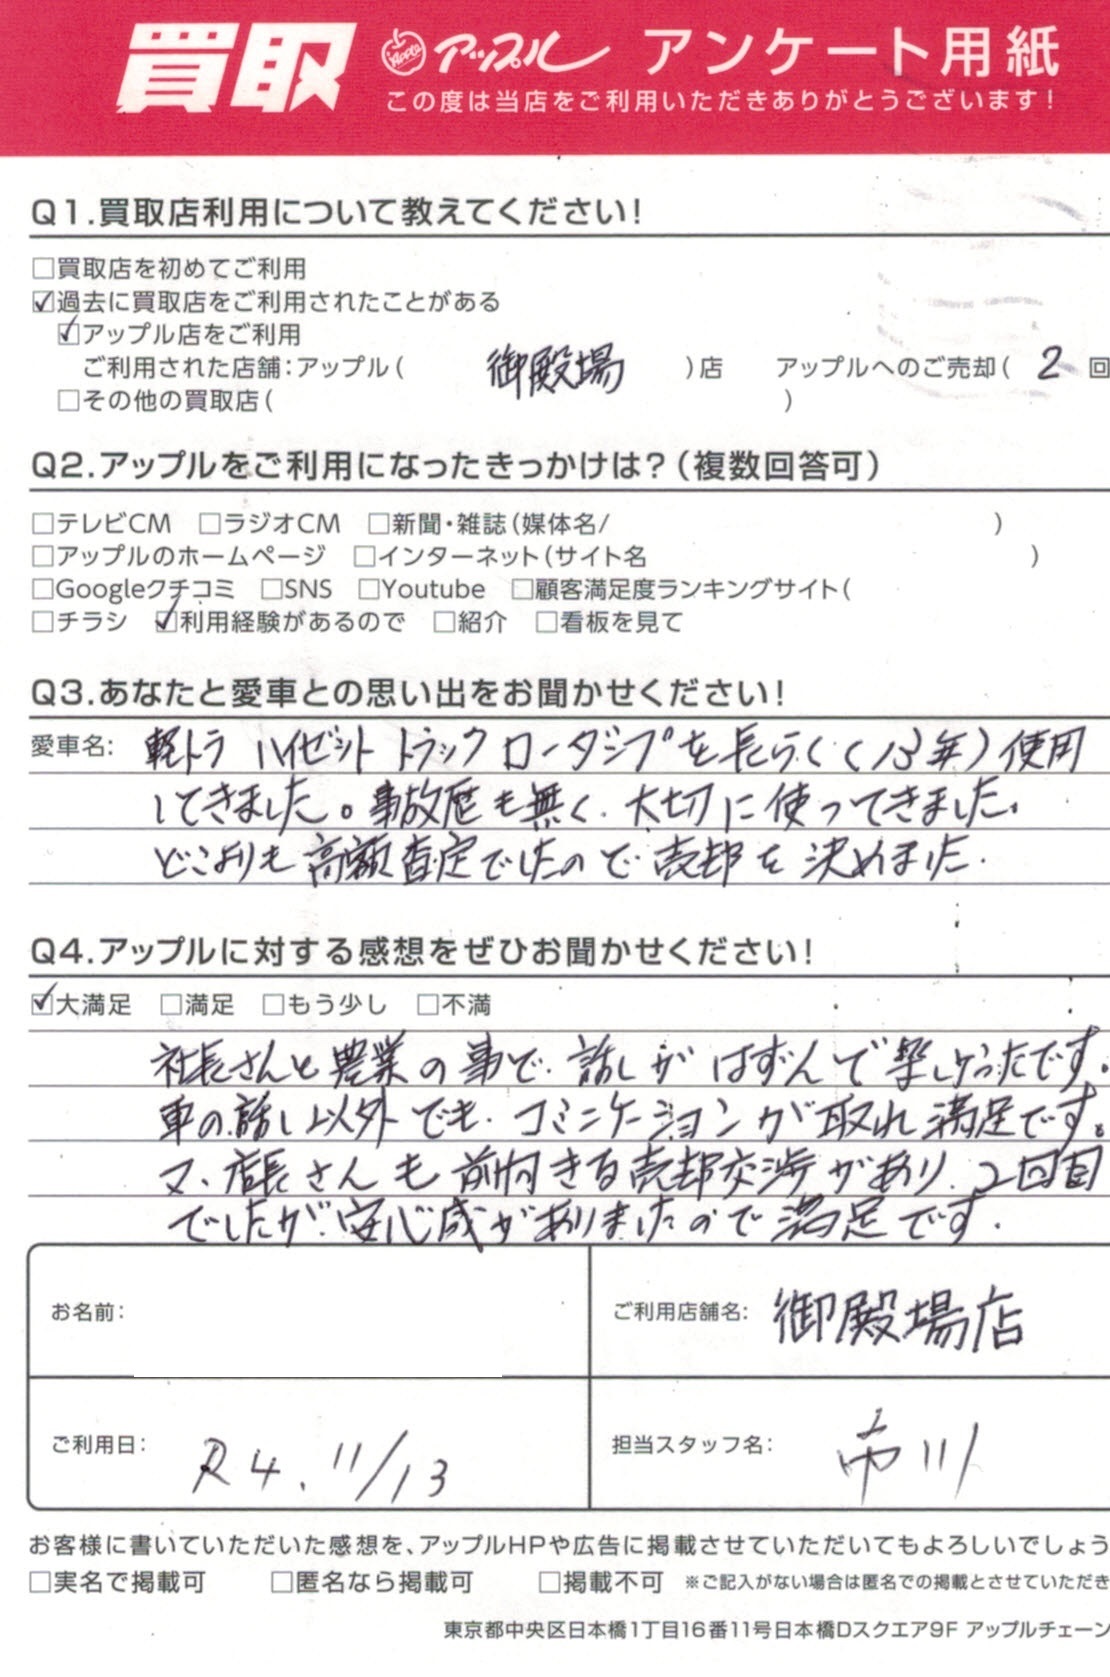 買取 アップル アンケート用紙
この度は当店をご利用いただきありがとうございます!
Q1.買取店利用について教えてください!
□買取店を初めてご利用
☑過去に買取店をご利用されたことがある
☑アップル店をご利用
ご利用された店舗:アップル( 御殿場 )店 アップルへのご売却( 2 回
□その他の買取店( )
Q2.アップルをご利用になったきっかけは?(複数回答可)
□テレビCM □ラジオCM □新聞・雑誌(媒体名/ )
□アップルのホームページ □インターネット(サイト名 )
□Googleクチコミ □SNS □Youtube □顧客満足度ランキングサイト(
□チラシ ☑利用経験があるので □紹介 □看板を見て
Q3.あなたと愛車との思い出をお聞かせください!
愛車名: 軽トラ ハイゼット トラック ローダンプを長らく(13年)使用
してきました。事故歴も無く、大切に使ってきました。
どこよりも高額査定でしたので売却を決めました.
Q4.アップルに対する感想をぜひお聞かせください!
☑大満足 □満足 □もう少し □不満
社長さんと農業の事で、話しがはずんで楽しかったです。
車の話し以外でも、コミニケーションが取れ満足です。
又、店長さんも前向きな売却交渉があり、2回目
でしたが安心感がありましたので満足です.
お名前:
ご利用店舗名: 御殿場店
ご利用日: R4. 11/13
担当スタッフ名: 市川
お客様に書いていただいた感想を、アップルHPや広告に掲載させていただいてもよろしいでしょう
□実名で掲載可 □匿名なら掲載可 □掲載不可 ※ご記入がない場合は匿名での掲載とさせていただき
東京都中央区日本橋1丁目16番11号日本橋Dスクエア9F アップルチェーン